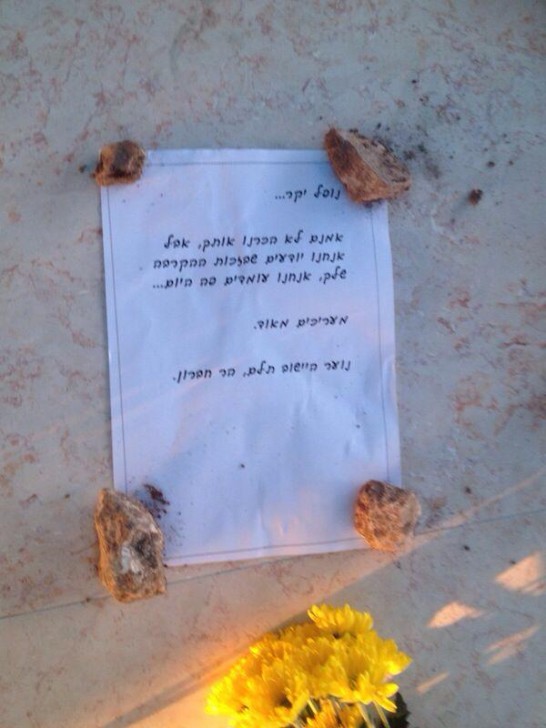 נופל יקר...
אמנם לא הכרנו אותך, אבל
אנחנו יודעים שבזכות ההקרבה
שלך, אנחנו עומדים פה היום...
מעריכים מאוד.
נוער היישוב תלם, הר חברון.